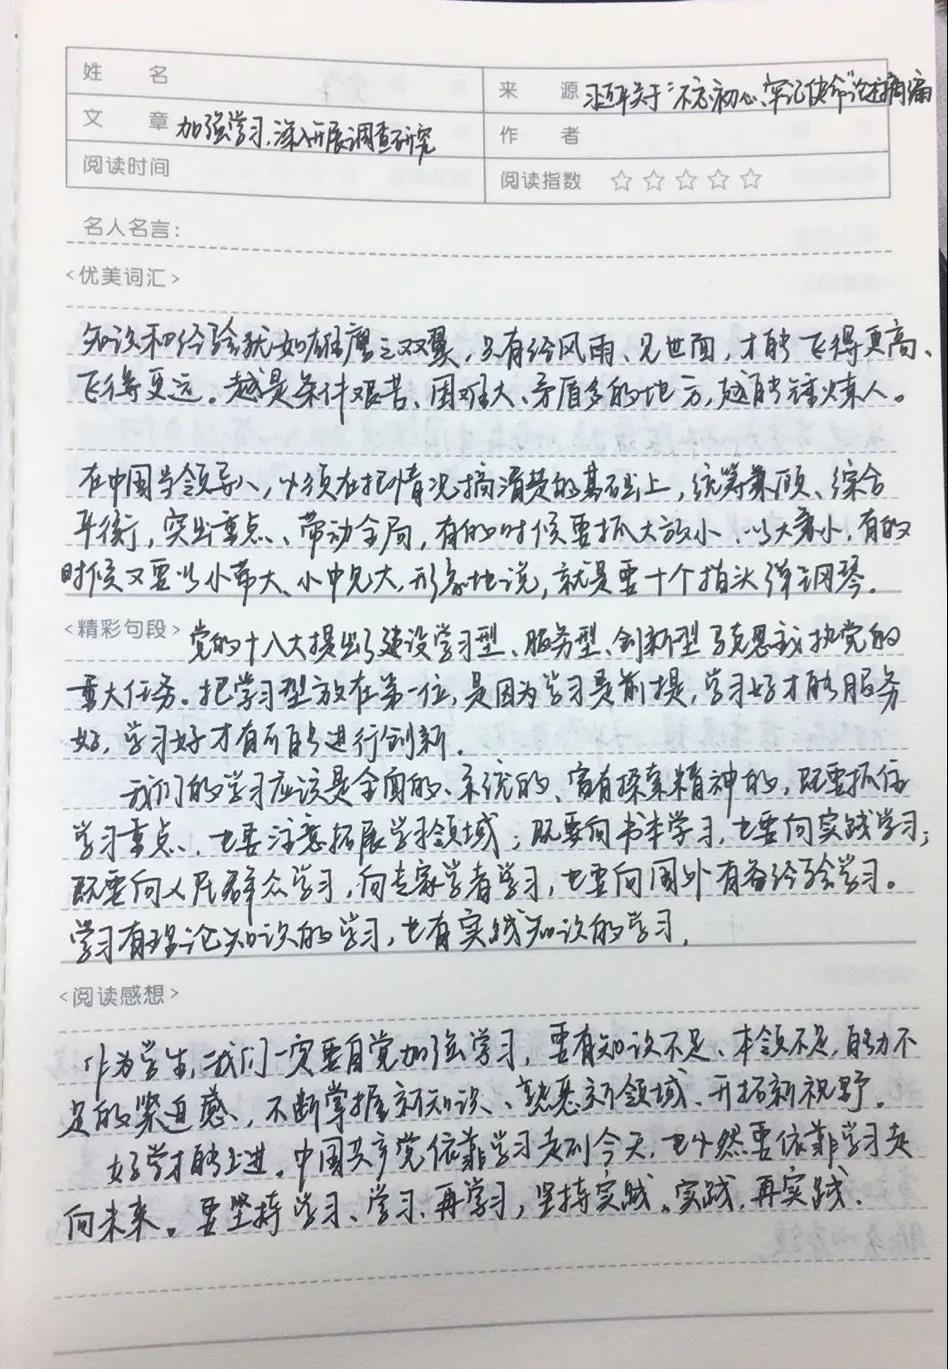 姓 名
来 源 习近平关于"不忘初心、牢记使命"论述摘编
文 章 加强学习、深入开展调查研究
作 者
阅读时间
阅读指数 ☆☆☆☆☆
名人名言：
<优美词汇>
知识和经验犹如雄鹰之双翼，只有经风雨、见世面，才能飞得更高、
飞得更远。越是条件艰苦、困难大、矛盾多的地方，越能锤炼人。
在中国当领导人，必须在把情况搞清楚的基础上，统筹兼顾、综合
平衡，突出重点、带动全局，有的时候要抓大放小、以大兼小，有的
时候又要以小带大、小中见大，形象地说，就是要十个指头弹钢琴。
<精彩句段> 党的十八大提出了建设学习型、服务型、创新型马克思主义执政党的
重大任务。把学习型放在第一位，是因为学习是前提，学习好才能服务
好，学习好才有可能进行创新。
我们的学习应该是全面的、系统的、富有探索精神的，既要抓住
学习重点、也要注意拓展学习领域；既要向书本学习，也要向实践学习；
既要向人民群众学习，向专家学者学习，也要向国外有益经验学习。
学习有理论知识的学习，也有实践知识的学习。
<阅读感想>
作为学生，我们一定要自觉加强学习，要有知识不足、本领不足，能力不
足的紧迫感、不断掌握新知识、熟悉新领域、开拓新视野。
好学才能上进。中国共产党依靠学习走到今天，也必然要依靠学习走
向未来。要坚持学习、学习、再学习，坚持实践、实践、再实践。